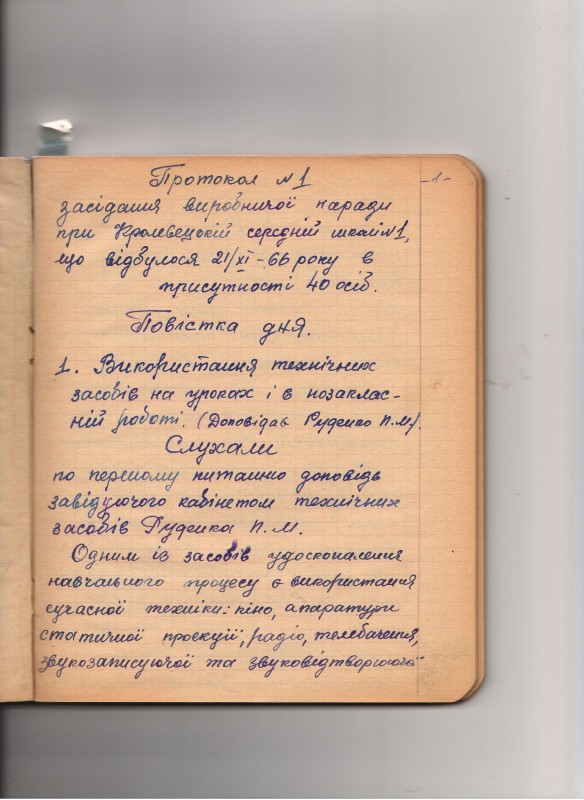 -1-
Протокол №1
засідання виробничої наради
при Кролевецькій середній школі №1,
що відбулося 21/XI-66 року в
присутності 40 осіб.
Повістка дня.
1. Використання технічних
засобів на уроках і в позаклас-
ній роботі. (Доповідав Руденко П.М.).
Слухали
по першому питанню доповідь
завідуючого кабінетом технічних
засобів Руденка П.М.
Одним із засобів удосконалення
навчального процесу є використання
сучасної техніки: кіно, апаратури
статичної проекції, радіо, телебачення,
звукозаписуючої та звуковідтворюючої